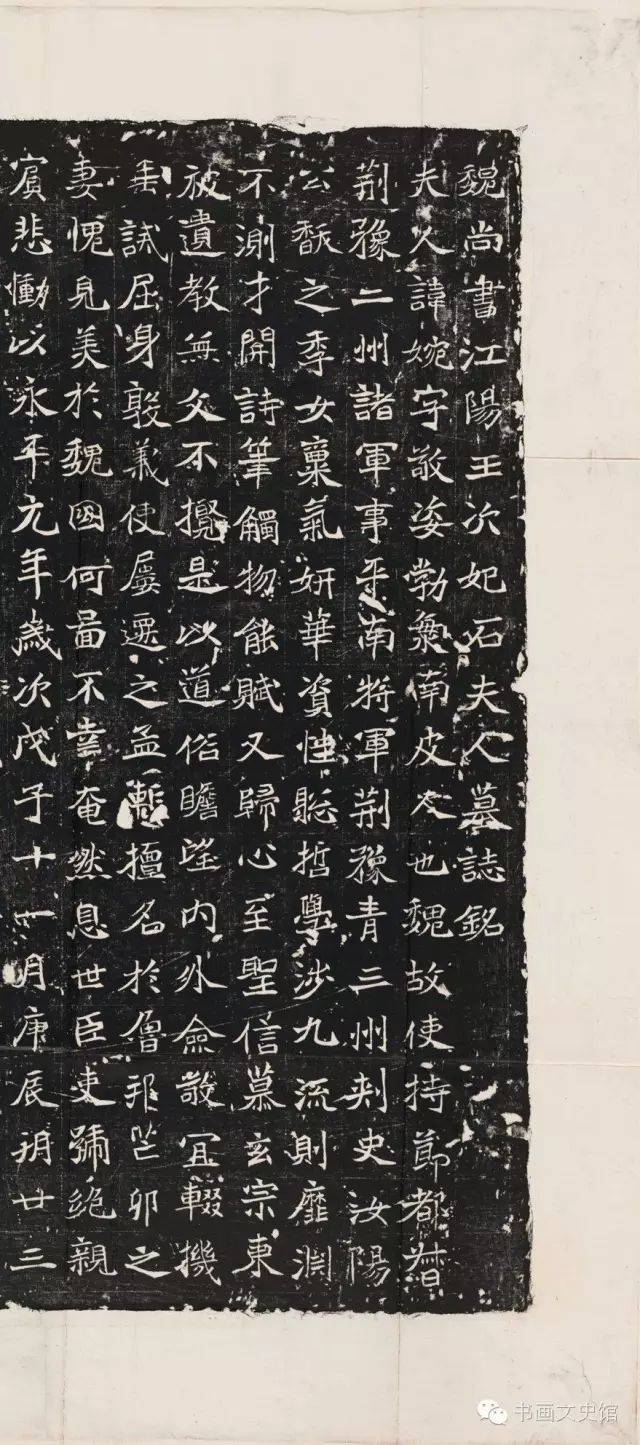 魏尚書江陽王次妃石夫人墓誌銘
夫人諱婉字敬姿勃海南皮人也魏故使持節都督
荊豫二州諸軍事平南將軍荊豫青三州刾史汝陽
公馛之季女稟氣妍華資性聡哲學涉九流則靡淵
不測才開詩筆觸物能賦又歸心至聖信慕玄宗東
被遺教無文不攬是以道俗瞻望內外僉敬冝輟機
譽試屈身敦義使屢遷之孟慙擅名於魯邦芒卯之
妻愧見美於魏國何啚不幸奄然息世臣吏號絶親
賓悲慟以永平元年歲次戊子十一月庚辰朔廿三
书画文史馆